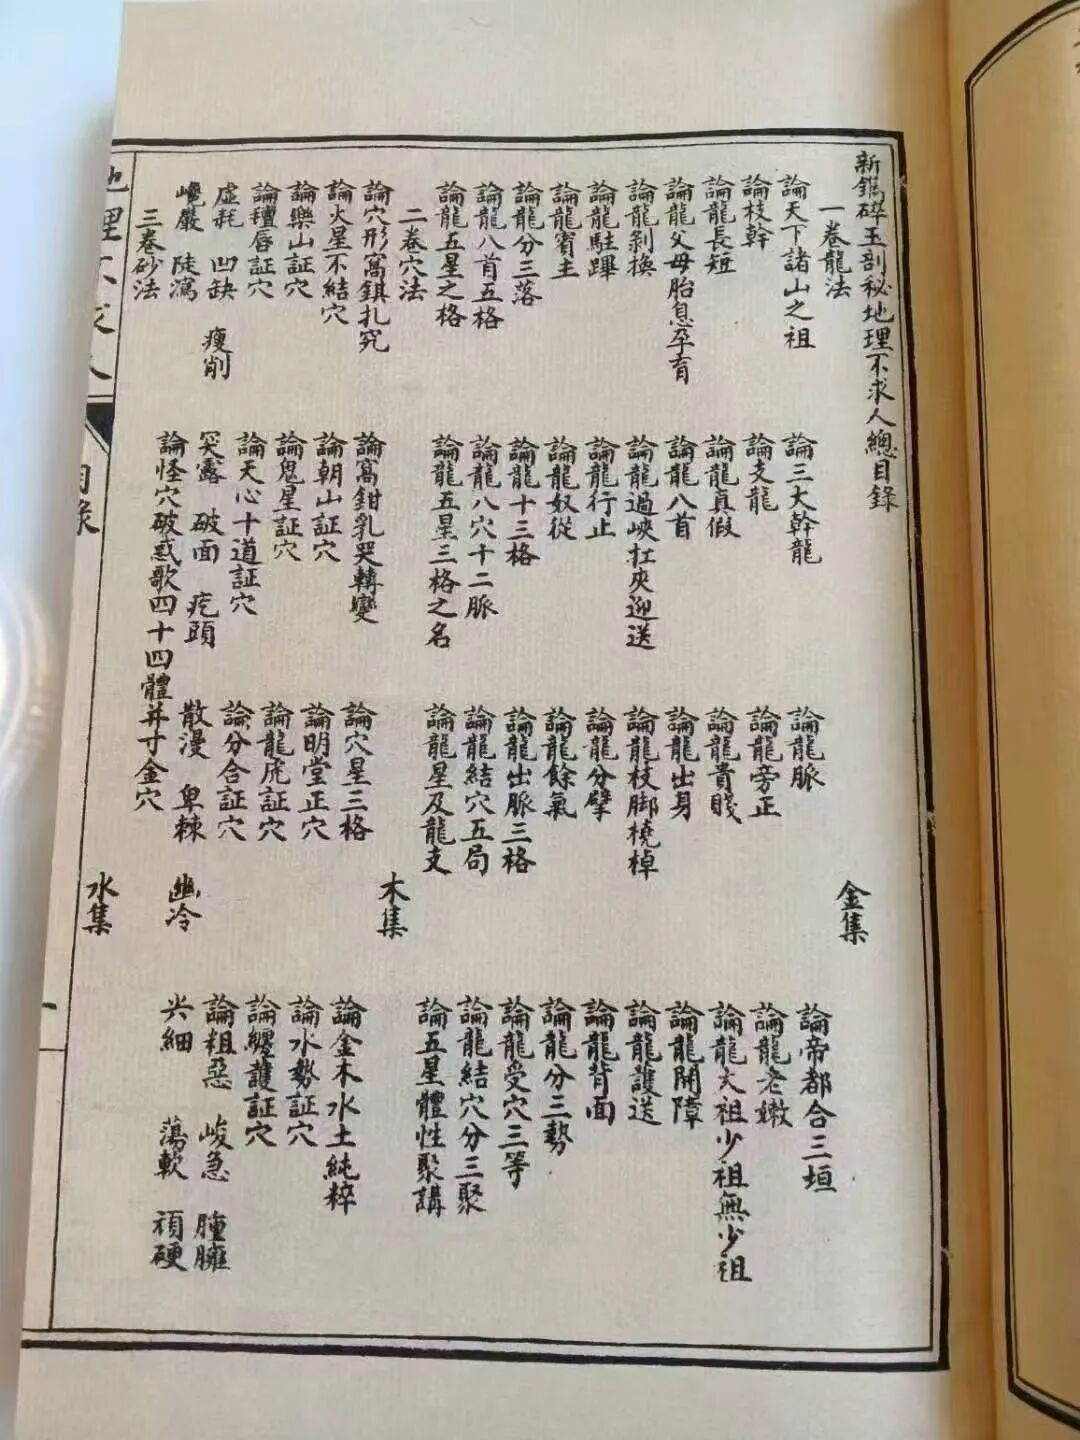 新鐫碎玉剖秘地理不求人總目錄
一卷龍法 金集
論天下諸山之祖 論三大幹龍 論龍脈 論帝都合三垣
論枝幹 論支龍 論龍旁正 論龍老嫩
論龍長短 論龍真假 論龍貴賤 論龍太祖少祖無少祖
論龍父母胎息孕育 論龍八首 論龍出身 論龍開障
論龍剝換 論龍過峽扛夾迎送 論龍枝脚橈棹 論龍護送
論龍駐蹕 論龍行止 論龍分擘 論龍背面
論龍賓主 論龍奴從 論龍餘氣 論龍分三勢
論龍分三落 論龍十三格 論龍出脈三格 論龍受穴三等
論龍八首五格 論龍八穴十二脈 論龍結穴五局 論龍結穴分三聚
論龍五星之格 論龍五星三格之名 論龍星及龍支 論五星體性聚講
二卷穴法 木集
論穴形窩鉗扎究 論窩鉗乳突轉變 論穴星三格 論金木水土純粹
論火星不結穴 論朝山証穴 論明堂正穴 論水勢証穴
論樂山証穴 論鬼星証穴 論龍虎証穴 論纏護証穴
論氊唇証穴 論天心十道証穴 論分合証穴 論粗惡 峻急 臃腫
虛耗 凹缺 瘦削 突露 破面 疙頭 散漫 卑棘 幽冷 尖細 蕩軟 頑硬
巉巖 陡瀉 論怪穴破惑歌四十四體并寸金穴
三卷砂法 水集
地理不求人 目錄 一